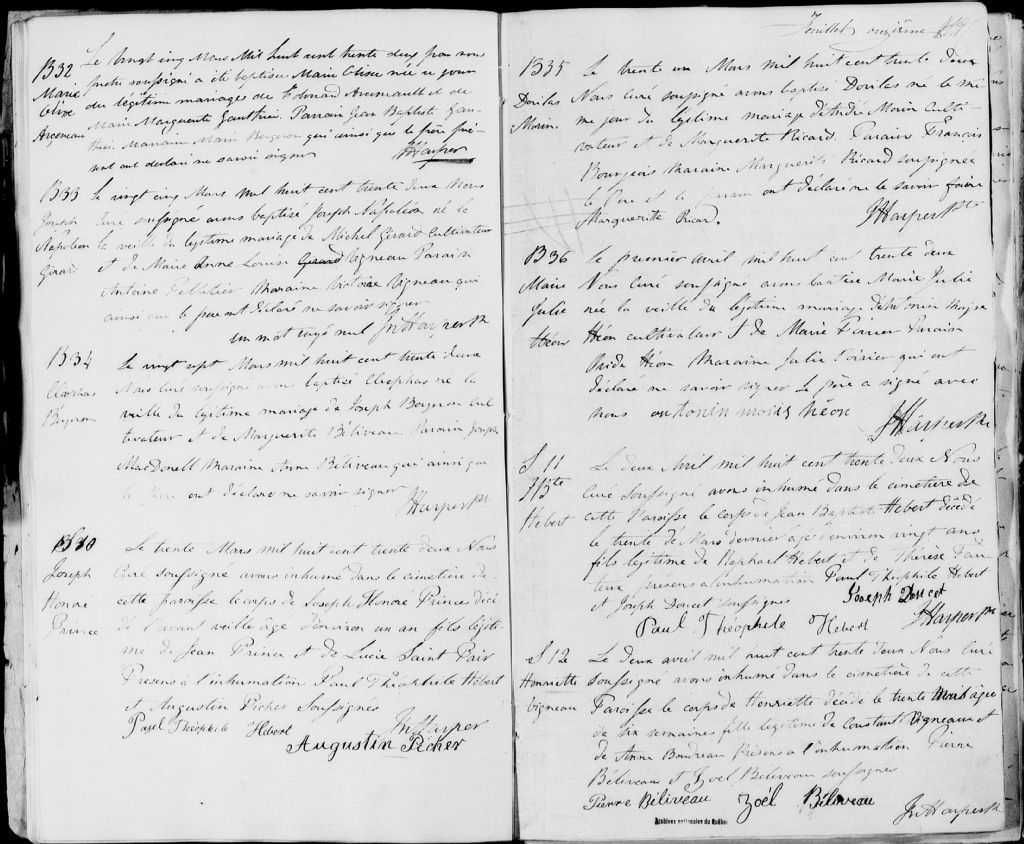 B32
Marie
Elize
Arceneau
Le vingt cinq Mars Mil huit cent trente deux par nous
prêtre soussigné a été baptisée Marie Elisee née ce jour
du légitime mariage de Edouard Arceneault et de
Marie Marguerite Gauthier. Parrain Jean Baptiste Gau-
thier. Marraine Marie Bergeron qui ainsi que le père pré-
sent ont déclaré ne savoir signer
JHarper
B33
Joseph
Napoléon
Girard
Le vingt cinq Mars mil huit cent trente deux Nous
Curé soussigné avons baptisé Joseph Napoléon né la
la veille du legitime mariage de Michel Girard Cultivateur
et de Marie Anne Louise Girard Vigneau Parain
Antoine Pelletier Maraine Victoire Vigneau qui
ainsi que le pere ont déclaré ne savoir signer
un mot rayé nul Jn Harper Ptr
B34
Cleophas
Bergeron
Le vingt sept Mars mil huit cent trente deux
Nous Curé soussigné avons baptisé Cleophas né la
veille du legitime mariage de Joseph Bergeron Cul
tivateur et de Marguerite Béliveau. Parain Joseph
MacDonell Maraine Anne Béliveau qui ainsi que
le pere ont déclaré ne savoir signer
JHarper Ptr
S 10
Joseph
Honoré
Prince
Le trente Mars mil huit cent trente deux Nous
Curé soussigné avons inhumé dans le cimetière de
cette paroisse le corps de Joseph Honoré Prince décé
dé l'avant veille âgé d'environ un an fils légiti-
me de Jean Prince et de Lucie Saint Pair
Presens a l'inhumation Paul Théophile Hébert
et Augustin Picher Soussignés
Paul Théophile Hébert Jn Harper
Augustin Picher
Feuillet onzième
B35
Dorilas
Morin.
Le trente un Mars mil huit cent trente deux
Nous Curé soussigné avons baptisé Dorilas né le mê-
me jour du legitime mariage d'André Morin Culti
vateur et de Marguerite Ricard. Parain François
Bourgeois Maraine Marguerite Ricard soussignée
le Père et le parrain ont déclaré ne le savoir faire
Marguerite Ricard. JHarper Ptr
B36
Marie
Julie
Héon
Le premier avril mil huit cent trente deux
Nous Curé soussigné avons baptisé Marie Julie
née la veille du legitime mariage d'Antonin Moyse
Héon cultivateur & de Marie Poirier Parain
Ovide Héon Maraine Julie Poirier qui ont
déclaré ne savoir signer le père a signé avec
nous antonin moiis héon
JHarper Ptr
S 11
J Bte
Hebert
Le deux Avril mil huit cent trente deux Nous
Curé Soussigné avons inhumé dans le cimetière de
cette Paroisse le corps de Jean Baptiste Hebert décédé
le trente de Mars dernier âgé d'environ vingt ans
fils legitime de Raphael Hebert et de Thérèse Pau
presens a l'inhumation Paul Théophile Hebert
et Joseph Doucet soussignés Joseph Doucet
Paul Théophile Hébert JHarper Ptr
S 12
Henriette
Vigneau
Le deux avril mil huit cent trente deux Nous Curé
soussigné avons inhumé dans le cimetière de cette
Paroisse le corps de Henriette décédé le trente Mars âgée
de six semaines fille legitime de Constant Vigneau et
de Anne Boudreau Présens a l'inhumation Pierre
Béliveau et Zoel Béliveau soussignés
Pierre Béliveau Zoél Béliveau
Jn Harper Ptr
Archives nationales du Québec